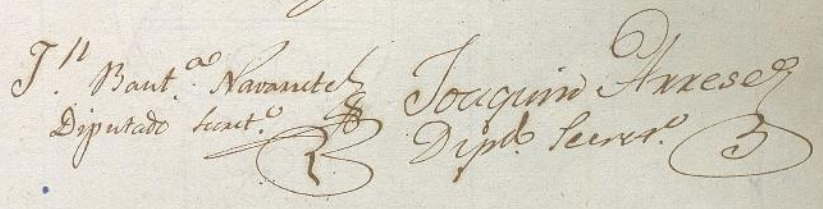 Jn. Bauta. Navarrete
Diputado Secreto.
Joaquin Arrese
Dipdo. Secreto.